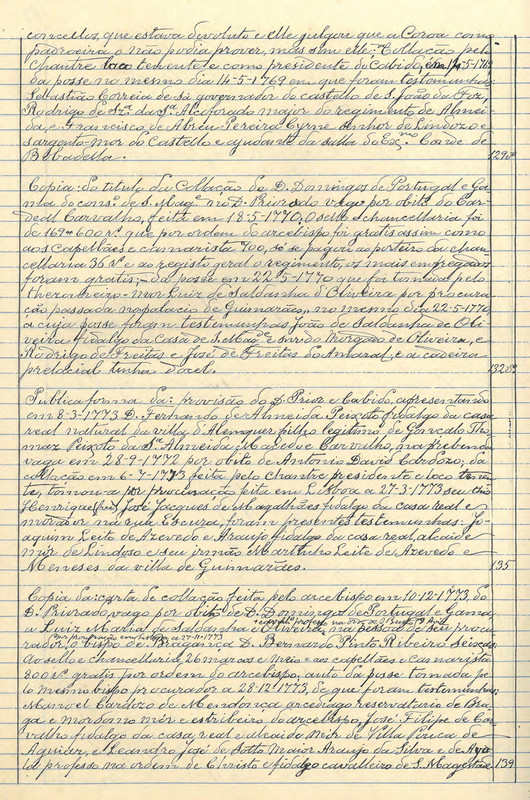 concellos, que estava devoluto e elle julgou que a Coroa como
padroeira o não podia prover, mas sim elle. Collação pelo
Chantre loco tenente e como presidente do Cabido, em 14-5-1769
da posse no mesmo dia 14-5-1769 em que foram testemunhas
Sebastião Correia de Sá governador do castello de S. João da Foz,
Rodrigo de Sz.ª da S.ª Alcoforado major do regimento de Almei-
da, e Francisco de Abreu Pereira Cyrne senhor de Lindozo e
sargento-mor do Castello e ajudante da salla do Ex.º Conde de
Bobadella.
Copia: do titulo da Collação de D. Domingos de Portugal e Ga-
ma do cons.º de S. Mag.e no D. Priorado vago por obito do Car-
deal Carvalho, feita em 18-5-1770. O sello e chancellaria foi
de 167 600 rs. que por ordem do arcebispo foi gratis assim como
aos capellães e camarista 900, só se pagou ao porteiro da chan-
cellaria 36 rs. e ao registo geral o regimento, os mais empregados
foram gratis; – da posse em 22-5-1770 que foi tomada pelo
thezoureiro-mor Luiz de Saldanha d'Oliveira por procura-
ção passada no palacio de Guimarães, no mesmo dia 22-5-1770,
a cuja posse foram testemunhas João de Saldanha de Oli-
veira fidalgo da Casa de S. Mag.e e snr. do Morgado de Oliveira, e
Rodrigo de Freitas e José de Freitas do Amaral, e a cadeira
prelacial tinha docel.
Publica forma da: provisão do D. Prior e Cabido, apresentando
em 8-3-1773 D. Fernando de Almeida Peixoto fidalgo da casa
real natural da villa d'Alemquer filho legitimo de Gonçalo Tho-
maz Peixoto da S.ª Almeida Macedo e Carvalho, na prebenda
vaga em 28-9-1772 por obito de Antonio David Cardozo; da
collação em 6-7-1773 feita pelo chantre presidente e loco tenen-
te, tomou-a por procuração feita em Lisboa a 27-3-1773 seu tio
Henrique José Jacques de Magalhães fidalgo da casa real e
morador na rua Escura, foram presentes testemunhas: Jo-
aquim Leite de Azevedo e Araujo fidalgo da casa real, alcaide
mór de Lindoso e seu irmão Martinho Leite de Azevedo e
Menezes da villa de Guimarães.
135
Copia da: carta de collação feita pelo arcebispo em 10-12-1773, do
D. Priorado, vago por obito de D. Domingos de Portugal e Gama,
a Luiz Manuel de Saldanha e Oliveira, na pessoa de seu procu-
rador, o bispo de Bragança D. Bernardo Pinto Ribeiro Seixas.
Ao sello e chancelleria 26 marcos e meio e aos capellães e camarista
800 rs. gratis por ordem do arcebispo; auto da posse tomada pe-
lo mesmo bispo procurador a 28-12-1773, de que foram testemunhas:
Manoel Cardozo de Mendonça arcediago reservatario de Bra-
ga e mordomo mór e estribeiro do arcebispo, José Filipe de Car-
valho fidalgo da casa real e alcaide mór de Villa Pouca de
Aguiar, e Leandro José de Sotto Maior Araujo da Silva e de Aya-
la professo na ordem de Christo e fidalgo cavalleiro de S. Magestade.
139